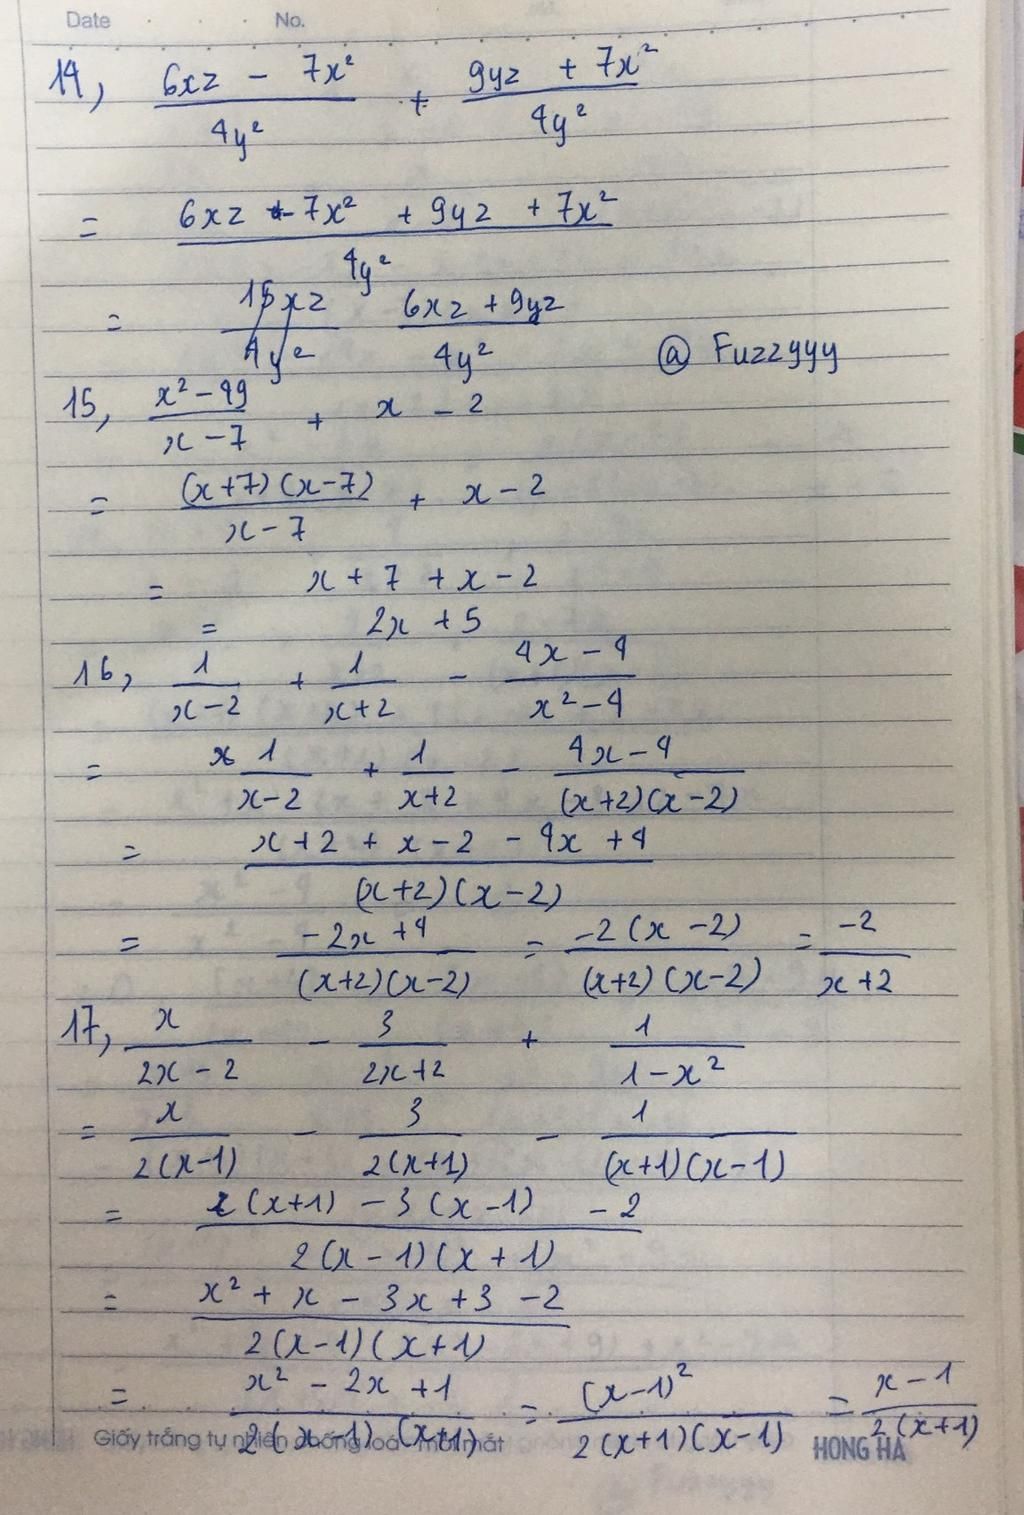 Date No.
14, (6xz - 7x²)/(4y²) + (9yz + 7x²)/(4y²)
= (6xz - 7x² + 9yz + 7x²)/(4y²)
= (6xz + 9yz)/(4y²)
@ Fuzzyyy
15, (x² - 49)/(x - 7) + x - 2
= ((x+7)(x-7))/(x - 7) + x - 2
= x + 7 + x - 2
= 2x + 5
16, 1/(x-2) + 1/(x+2) - (4x - 4)/(x² - 4)
= 1/(x-2) + 1/(x+2) - (4x - 4)/((x+2)(x-2))
= (x+2 + x - 2 - 4x + 4)/((x+2)(x-2))
= (-2x + 4)/((x+2)(x-2)) = (-2(x - 2))/((x+2)(x-2)) = -2/(x+2)
17, x/(2x - 2) - 3/(2x+2) + 1/(1 - x²)
= x/(2(x-1)) - 3/(2(x+1)) - 1/((x+1)(x-1))
= (x(x+1) - 3(x-1) - 2)/(2(x-1)(x+1))
= (x² + x - 3x + 3 - 2)/(2(x-1)(x+1))
= (x² - 2x + 1)/(2(x-1)(x+1)) = (x-1)²/(2(x+1)(x-1)) = (x - 1)/(2(x+1))
Giấy trắng tự nhiên chống loá mỏi mắt HONG HA